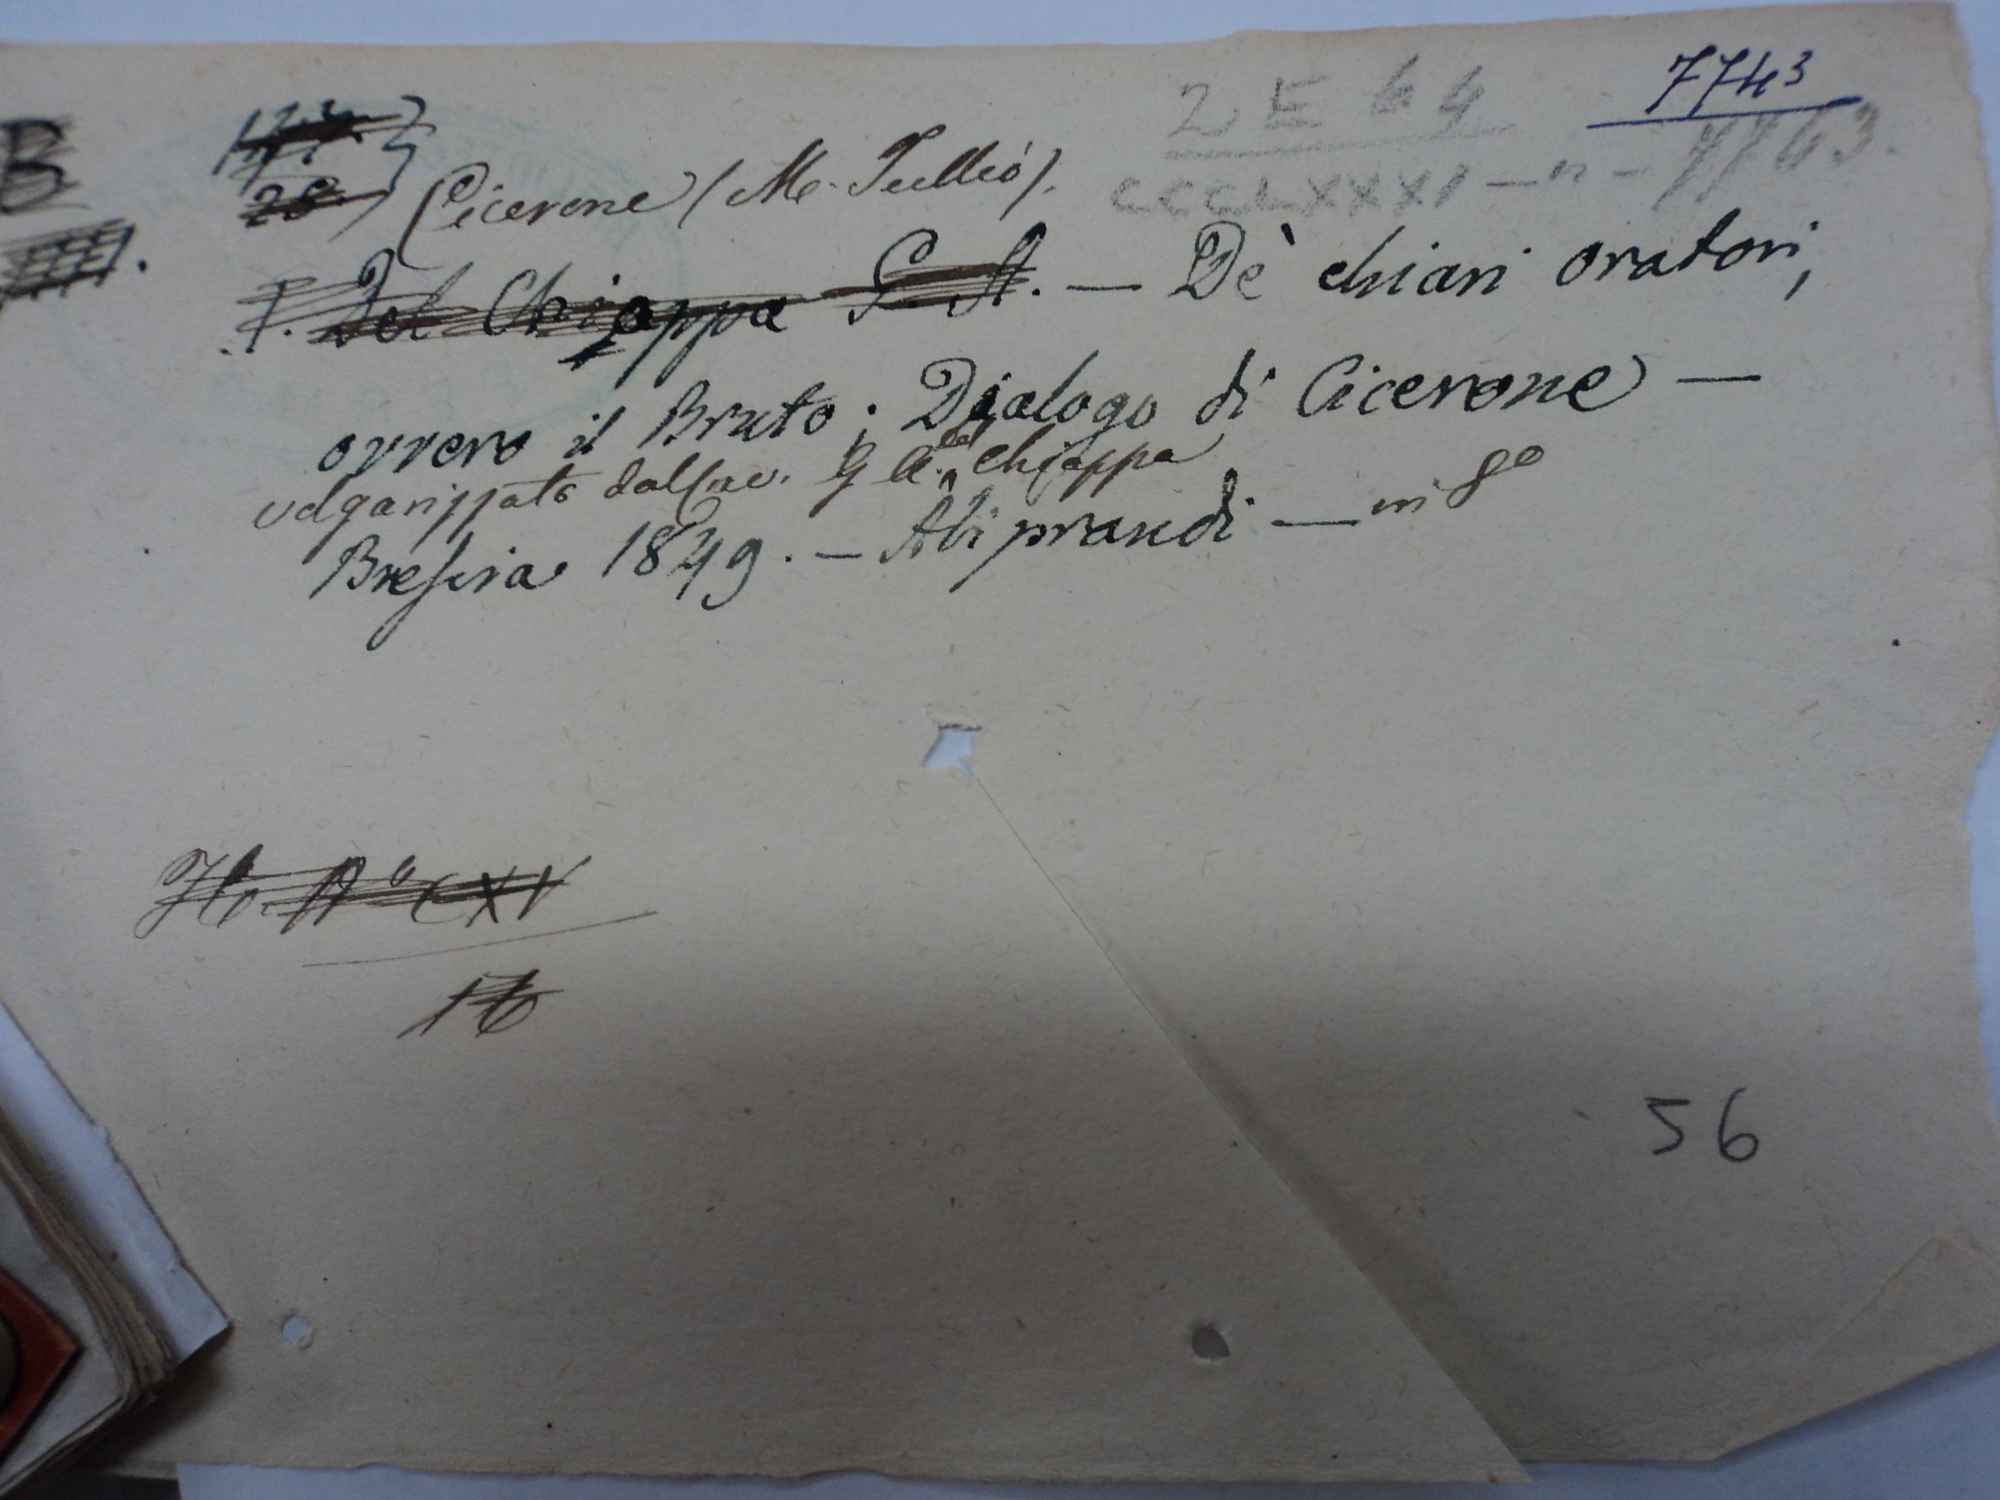 B
2 E 64
7743
28
Cicerone (M. Tullio).
CCCLXXXI — n — 7763.
Del Chiappa G. A. — De' chiari oratori,
ovvero il Bruto; Dialogo di Cicerone —
volgarizzato dal G A. del Chiappa
Brescia 1849. — Aliprandi — in 8º
CXV
16
56